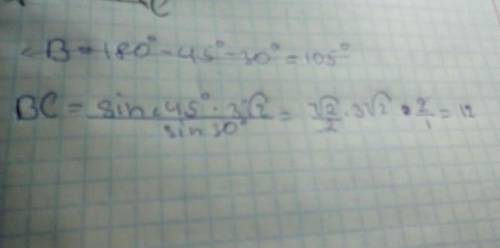 C
∠B = 180° - 45° - 30° = 105°
BC = sin 45° · 3√2 / sin 30° = √2/2 · 3√2 · 2/1 = 12